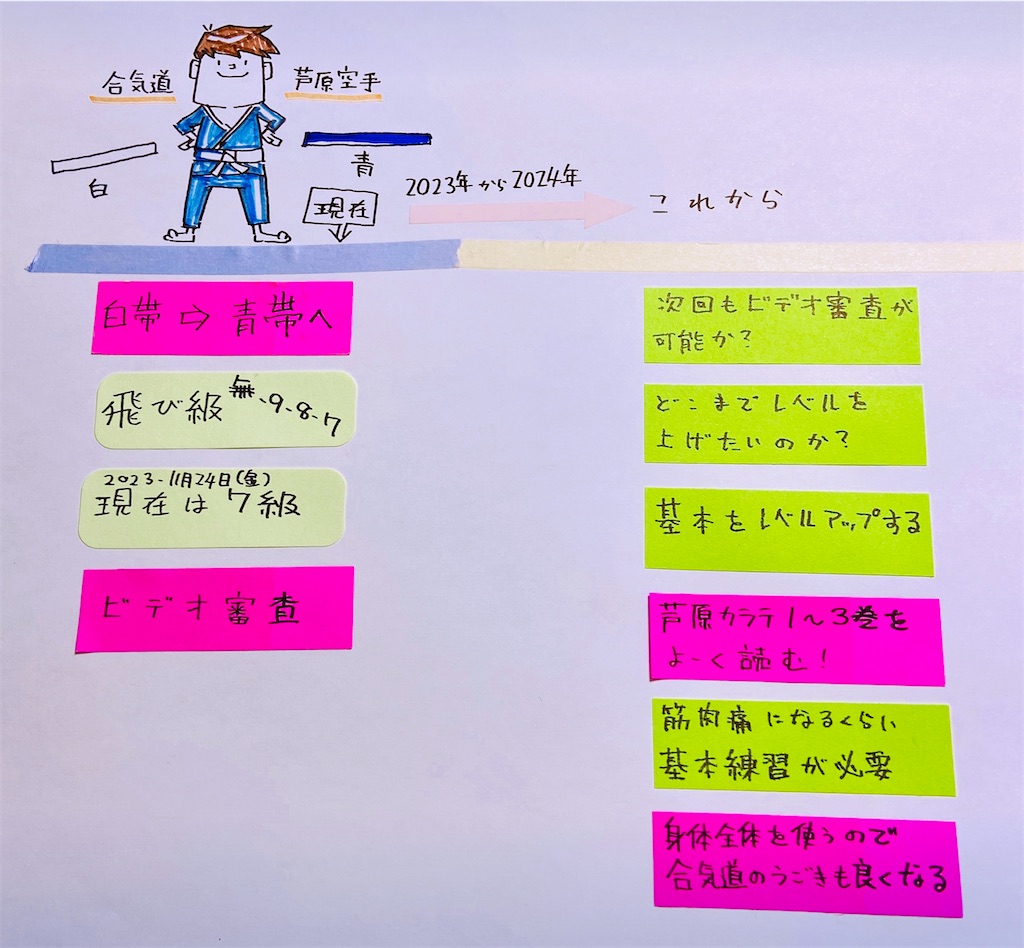 合気道
芦原空手
白
青
現在
2023年から2024年
これから
白帯⇨青帯へ
飛び級 無-9-8-7
2023-11月24日(金)
現在は7級
ビデオ審査
次回もビデオ審査が
可能か?
どこまでレベルを
上げたいのか?
基本をレベルアップする
芦原カラテ1〜3巻を
よーく読む!
筋肉痛になるくらい
基本練習が必要
身体全体を使うので
合気道のうごきも良くなる